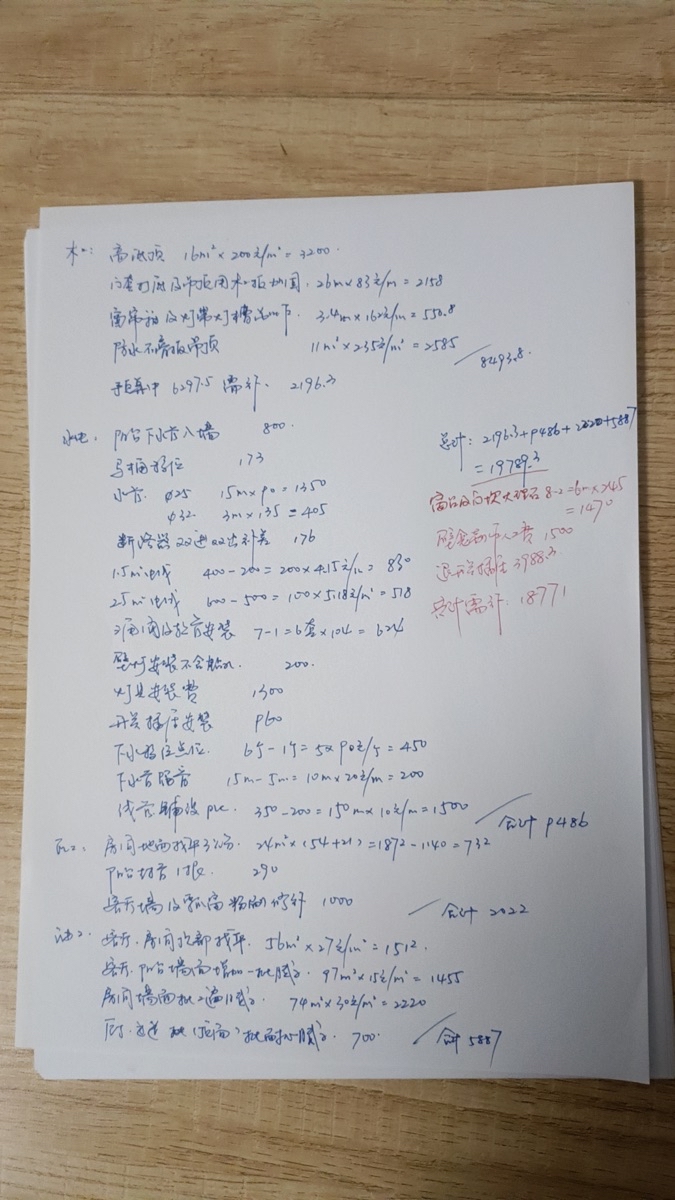 木工: 高低顶 16m²×200元/m²=3200.
门套打底及吊顶用木工板加固. 26m×83元/m=2158
窗帘箱及灯带灯槽 3.4m×162元/m=550.8
防水石膏板吊顶 11m²×235元/m²=2585
8493.8.
预算中 6297.5 需补. 2196.3
水电. 阳台下水管入墙 800.
马桶移位 173
水管. φ25 15m×90=1350
φ32 3m×135=405
断路器双进双出补差 176
1.5m²电线 400-200=200×4.15元/m=830
2.5m²电线 600-500=100×5.18元/m²=518
安装 7-1=6套×104=624
壁灯安装不含 200.
灯具安装费 1300
开关插座安装 960
下水移位点位. 6个-1个=5×90元/个=450
下水管隔音 15m-5m=10m×20元/m=200
线管铺设pvc. 350-200=150m×10元/m=1500
合计 9486
瓦工: 房间地面找平3公分. 24m²×(54+ =1872-1140=732
阳台 290
客厅墙及 窗 修补 1000
合计 2022
油工. 客厅.房间 找平. 56m²×27元/m²=1512.
客厅.阳台墙面增加一批腻子. 97m²×15元/m²=1455
房间墙面批二遍腻子. 74m²×30元/m²=2220
批(顶面)批耐水腻子. 700.
合计 5887
总计: 2196.3+9486+2220+5887
=19789.3
窗台 大理石 8-2=6m×245
=1470
1500
退开关插座 3988.3
总计需补. 18771